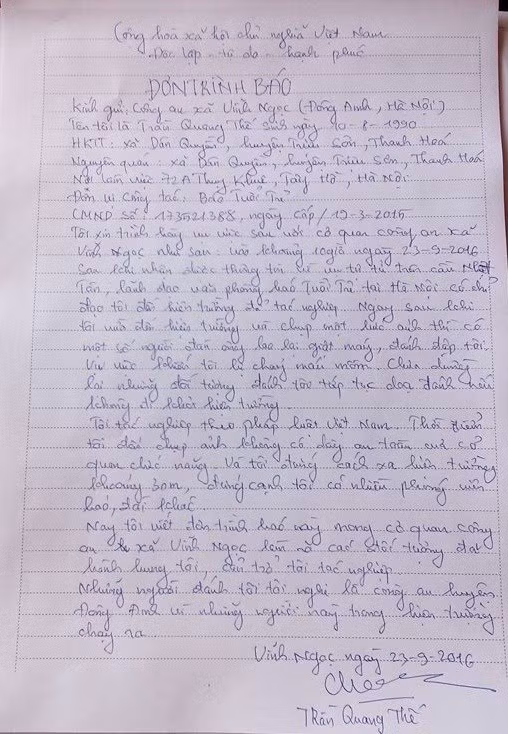 Cộng hoà xã hội chủ nghĩa Việt Nam
Độc lập - tự do - hạnh phúc
ĐƠN TRÌNH BÁO
Kính gửi, Công an xã Vĩnh Ngọc (Đông Anh, Hà Nội)
Tên tôi là Trần Quang Thế sinh ngày 10-8-1990
HKTT: xã Dân Quyền, huyện Triệu Sơn, Thanh Hoá
Nguyên quán: xã Dân Quyền, huyện Triệu Sơn, Thanh Hoá
Nơi làm việc 72A Thụy Khuê, Tây Hồ, Hà Nội
Đơn vị công tác: Báo Tuổi Trẻ
CMND số: 173521388, ngày cấp 19-3-2015
Tôi xin trình bày vụ việc sau với cơ quan công an xã
Vĩnh Ngọc như sau: vào khoảng 10 giờ ngày 23-9-2016
Sau khi nhận được thông tin về vụ tự tử trên cầu Nhật
Tân, lãnh đạo văn phòng báo Tuổi Trẻ tại Hà Nội có chỉ
đạo tôi đến hiện trường để tác nghiệp. Ngay sau khi
tôi vừa đến hiện trường và chụp một bức ảnh thì có
một số người đàn ông lao lại giật máy, đánh đập tôi.
Vụ việc khiến tôi bị chảy máu mồm. Chưa dừng
lại những đối tượng đánh tôi tiếp tục dọa đánh nếu
không đi khỏi hiện trường.
Tôi tác nghiệp theo pháp luật Việt Nam. Thời điểm
tôi đến chụp ảnh không có dây an toàn của cơ
quan chức năng. Và tôi đứng cách xa hiện trường
khoảng 30m, đứng cạnh tôi có nhiều phóng viên
báo, đài khác.
Nay tôi viết đơn trình báo này mong cơ quan công
an xã Vĩnh Ngọc làm rõ các đối tượng đã
hành hung tôi, cản trở tôi tác nghiệp.
Những người đánh tôi tôi nghi là công an huyện
Đông Anh vì những người này trong hiện trường
chạy ra.
Vĩnh Ngọc ngày 23-9-2016
Trần Quang Thế